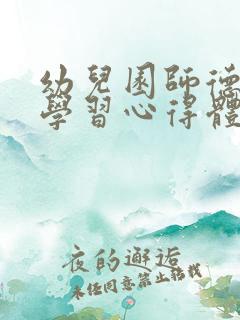 幼兒園師德
學習心得體
夜的邂逅
未經同意禁止轉載